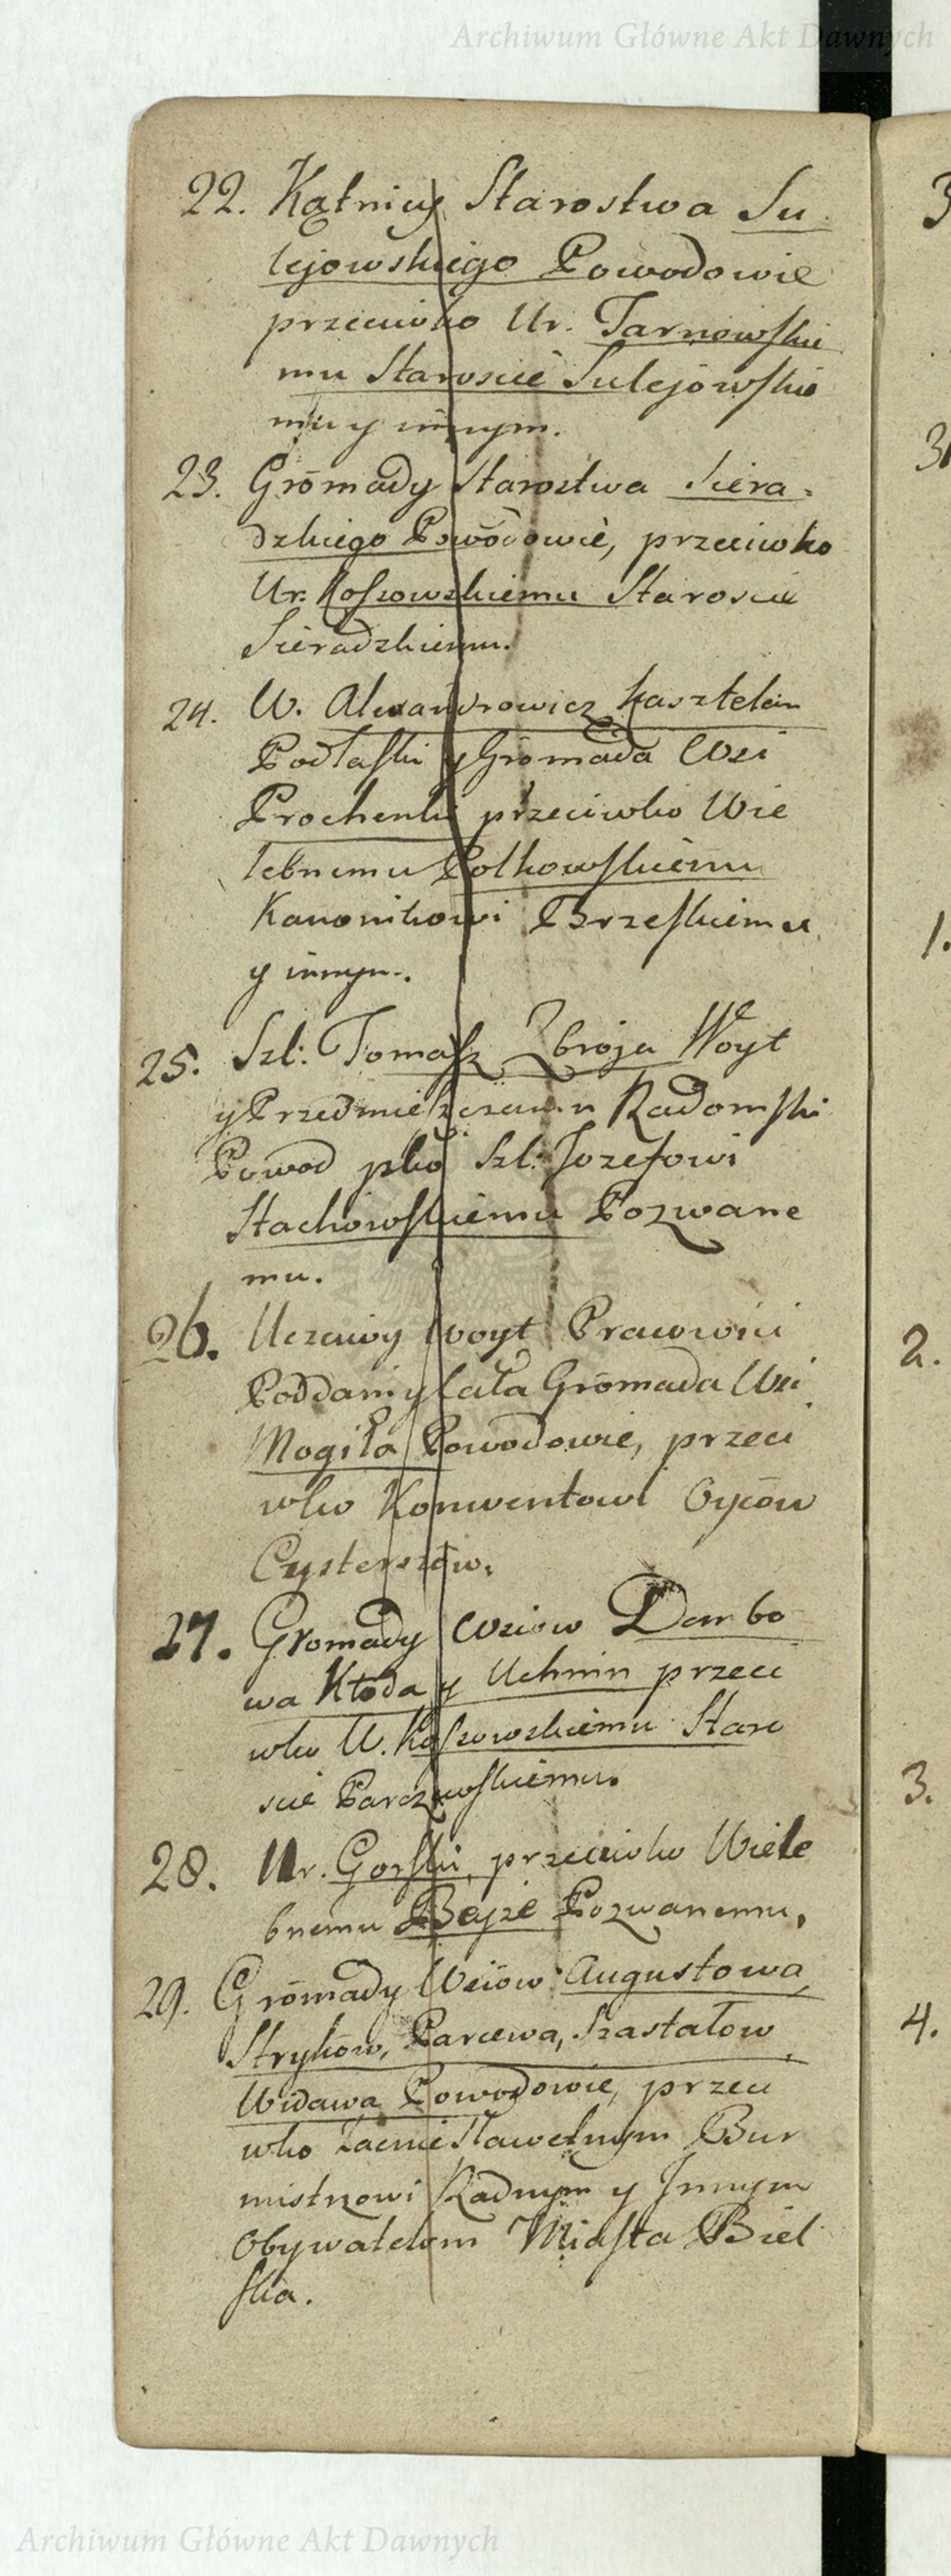 Archiwum Główne Akt Dawnych
22. Kątnicy Starostwa Su
lejowskiego Powodowie
przeciwko Ur. Tarnowskie
mu Staroście Sulejowskie
mu y innym.
23. Gromady Starostwa Siera-
dzkiego Powodowie, przeciwko
Ur. Kossowskiemu Staroscie
Sieradzkiemu.
24. W. Alexandrowicz Kasztelan
Podlaski y Gromada Wsi
Prochenki przeciwko Wie
lebnemu Polkowskiemu
Kanonikowi Brzeskiemu
y innym.
25. Szl: Tomasz Zbroja Woyt
y Przedmieszczanin Radomski
Powod pko Szl: Jozefowi
Stachowskiemu Pozwane
mu.
26. Uczciwy Woyt Prawowici
Poddani y cała Gromada Wsi
Mogiła Powodowie, przeci
wko Konwentowi Oycow
Cystersow.
27. Gromady Wsiow Dembo
wa Kłoda y Uchnin przeci
wko U. Kossowskiemu Staro
scie Parczewskiemu.
28. Ur. Gorski, przeciwko Wiele
bnemu Bayze Pozwanemu.
29. Gromady Wsiow Augustowa,
Strykow, Parcewa, Szastałow
Widawa Powodowie, przeci
wko Zacnie Sławetnym Bur
mistrzowi Radnym y Jnnym
Obywatelom Miasta Biel
ska.
3
3
1.
2.
3.
4.
Archiwum Główne Akt Dawnych